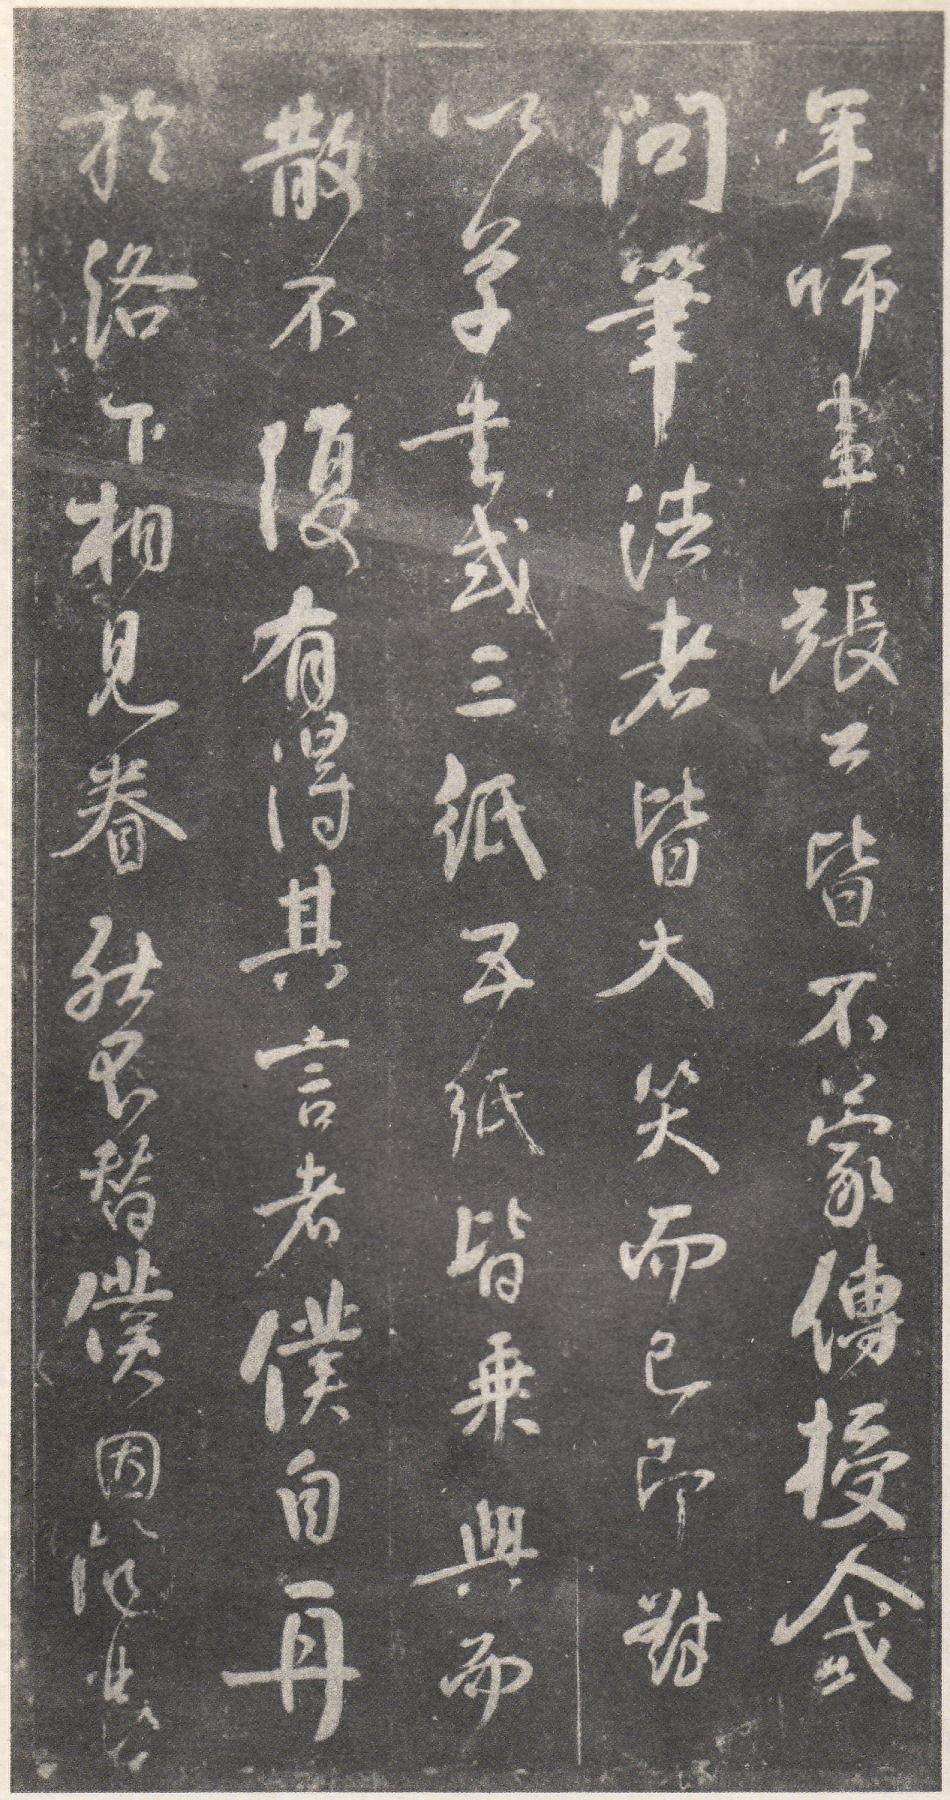 年師畫張公皆不蒙傳授人或
問筆法者皆大笑而已即對
以草書或三紙五紙皆乘興而
散不復有得其言者僕自再
於洛下相見眷然替僕因